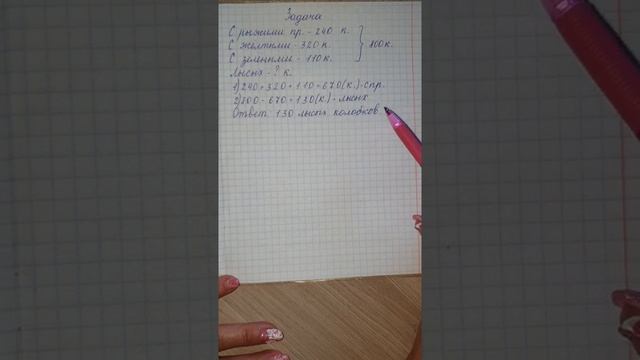 Задача
С рыжими пр. - 240 к.
С желтыми - 320 к. } 800к.
С зелеными - 110 к.
Лысых - ? к.
1) 240 + 320 + 110 = 670 (к.) - с пр.
2) 800 - 670 = 130 (к.) - лысых
Ответ: 130 лысых колобков.